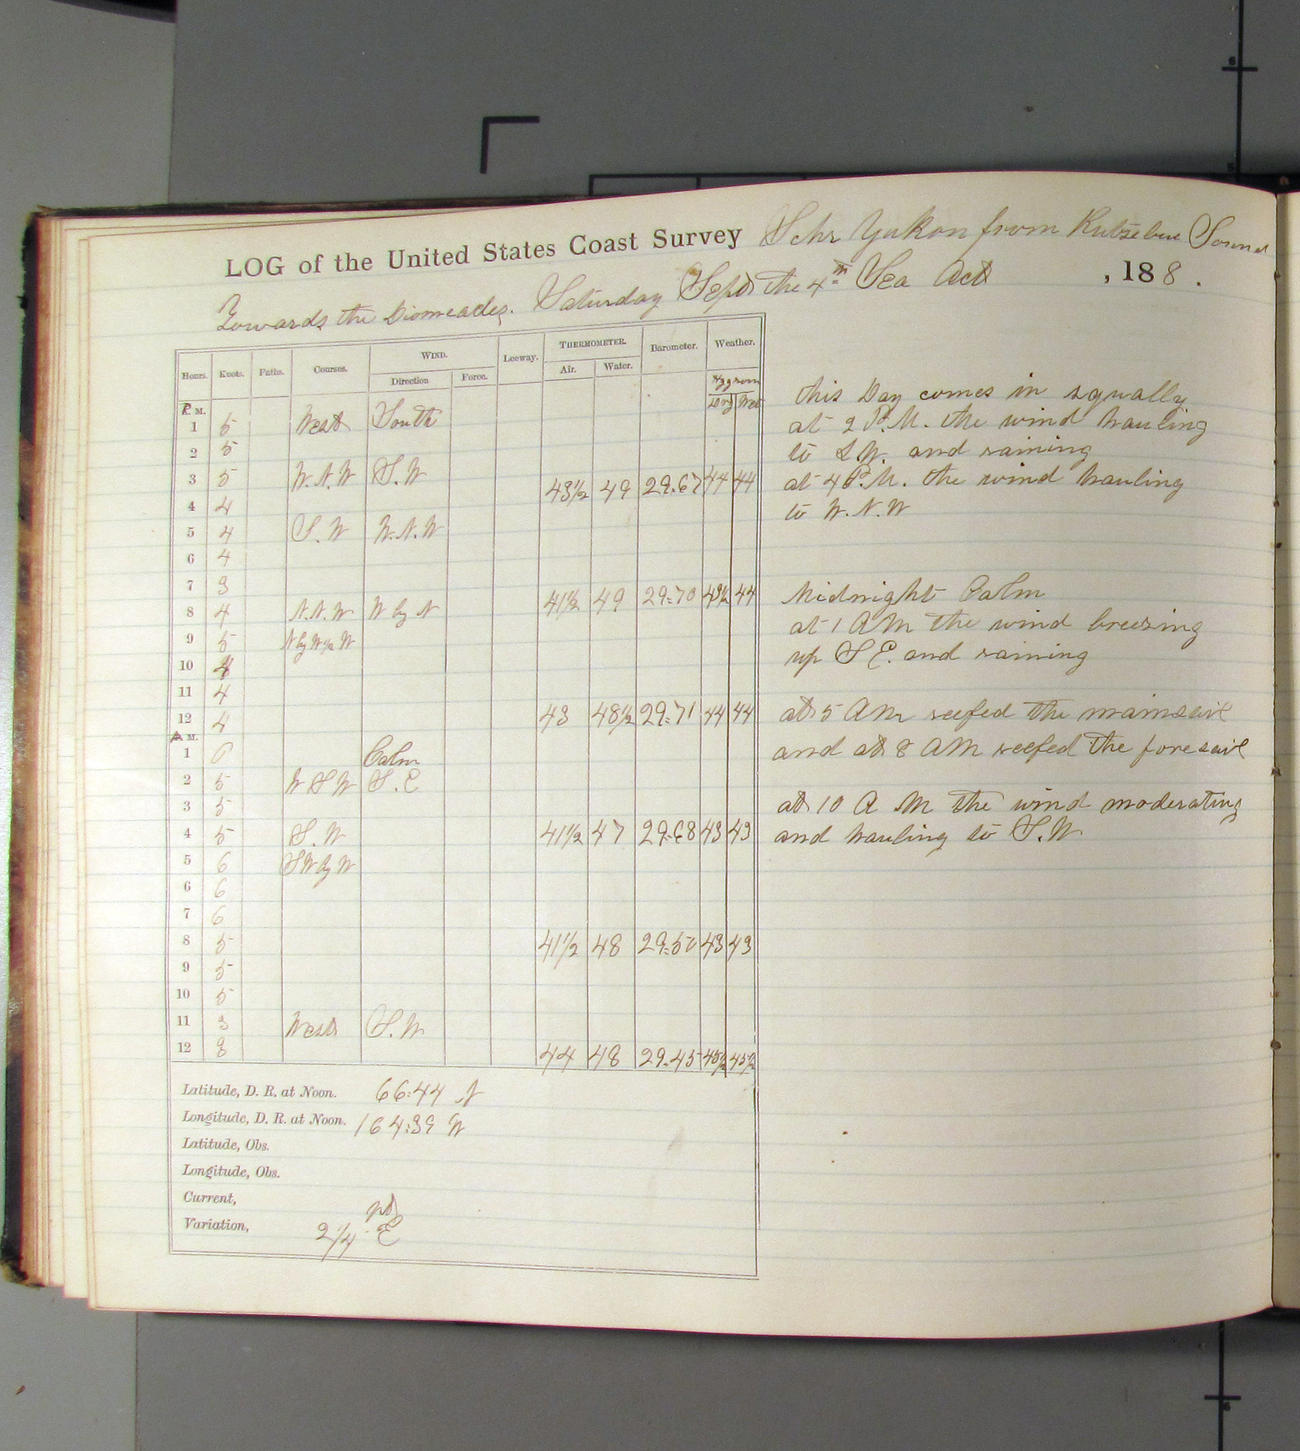 LOG of the United States Coast Survey Schr Yukon from Kutzebue Sound
Towards the Diomeades. Saturday Sept the 4th Sea Act , 188 .
Hours. Knots. Faths. Courses. WIND. Leeway. THERMOMETER. Barometer. Weather.
Direction Force. Air. Water.
Hygrom
Dry Wet
P. M.
1 5 West South
2 5
3 5 W.N.W S.W
4 4 43½ 49 29.67 44 44
5 4 S.W W.N.W
6 4
7 3
8 4 N.N.W W by N 41½ 49 29.70 43½ 44
9 5 N by W ½ W
10 4
11 4
12 4 43 48½ 29.71 44 44
A M.
1 0 Calm
2 5 W S W S.E
3 5
4 5 S.W 41½ 47 29.68 43 43
5 6 SW by W
6 6
7 6
8 5 41½ 48 29.50 43 43
9 5
10 5
11 3 West S.W
12 3 44 48 29.45 45½ 45½
Latitude, D. R. at Noon. 66.44 N
Longitude, D. R. at Noon. 164.39 W
Latitude, Obs.
Longitude, Obs.
Current,
Variation, 2¼ pts E
this Day comes in squally
at 2 P.M. the wind hauling
to S.W. and raining
at 4 P.M. the wind hauling
to W.N.W
Midnight Calm
at 1 A M the wind breezing
up S E. and raining
at 5 A M reefed the mainsail
and at 8 A M reefed the foresail
at 10 A M the wind moderating
and hauling to S.W